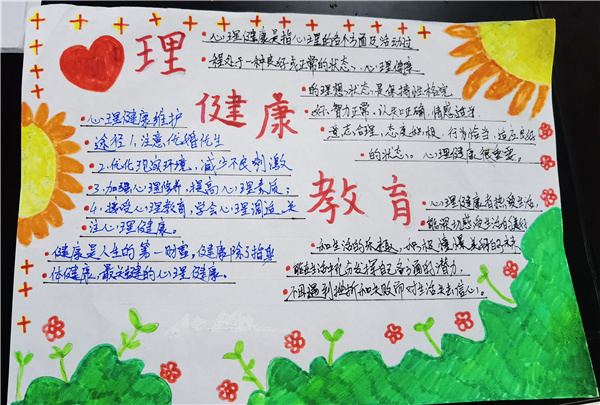 理
健康
教育
心理健康是指心理的各个方面及活动过
程处于一种良好或正常的状态。心理健康
的理想状态是保持性格完
好、智力正常、认知正确、情感适当、
意志合理、态度积极、行为恰当、适应良好
的状态。心理健康很重要。
心理健康维护
途径1、注意优婚优生
2、优化现实环境，减少不良刺激
3、加强心理修养，提高心理素质；
4、接受心理教育，学会心理调适。关
注心理健康。
健康是人生的第一财富，健康除了指身
体健康，最关键的心理健康。
心理健康者热爱生活，
能深切感受生活的美好
和生活的乐趣，积极憧憬美好的未来
能在生活中充分发挥自己各方面的潜力，
不因遇到挫折和失败而对生活失去信心。